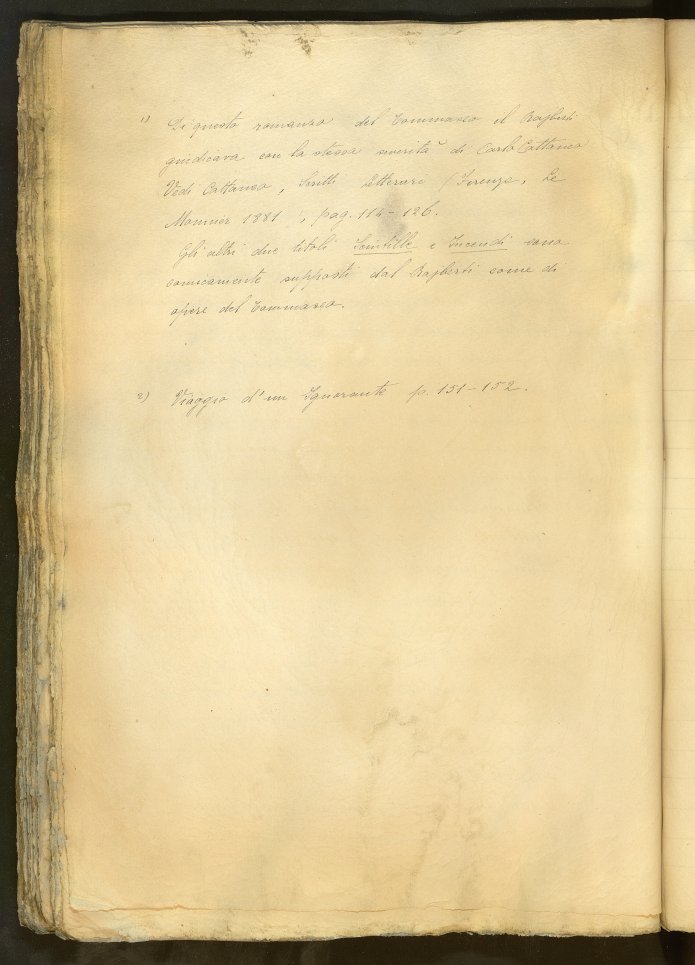 1) Di questo romanzo del Tommaseo il Rajberti
giudicava con la stessa severità di Carlo Cattaneo
Vedi Cattaneo, Scritti Letterari (Firenze, Le
Monnier 1881), pag. 114-126.
Gli altri due titoli Scintille e Incendi sono
comicamente supposti dal Rajberti come di
opere del Tommaseo.
2) Viaggio d'un Ignorante p. 151-152.